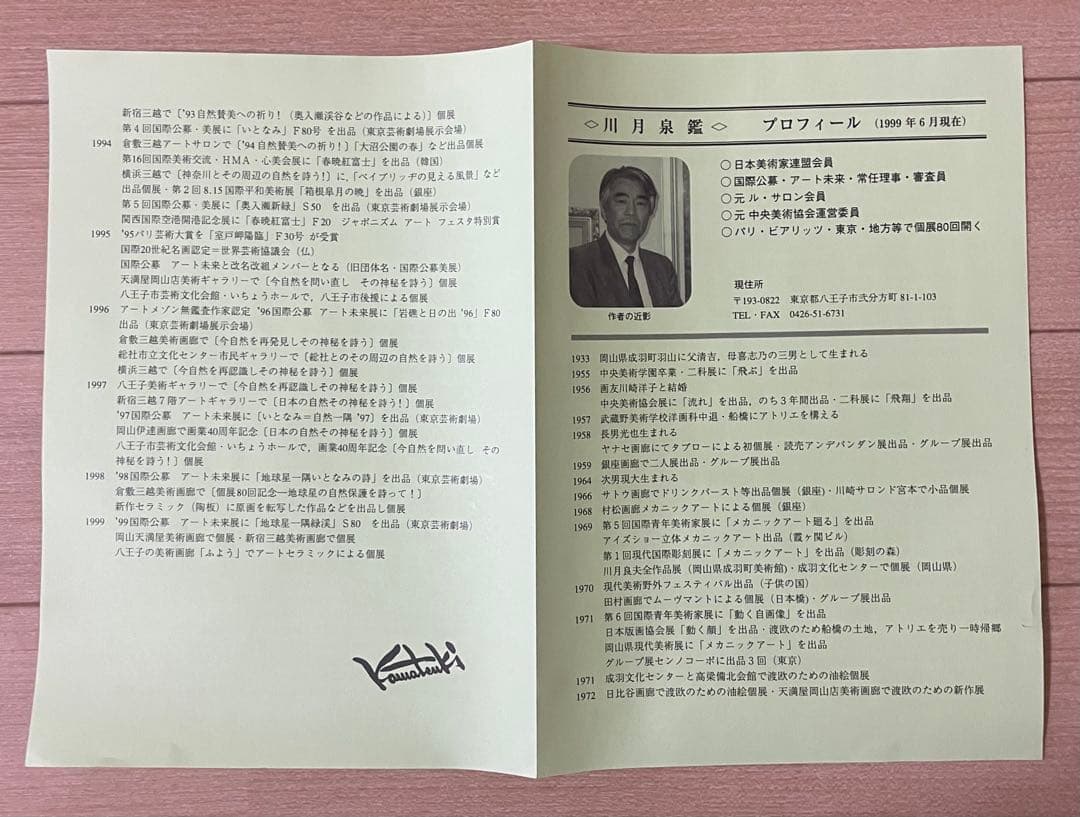 新宿三越で〔'93自然賛美への祈り!（奥入瀬渓谷などの作品による)〕個展
第4回国際公募・美展に「いとなみ」F80号 を出品（東京芸術劇場展示会場）
1994 倉敷三越アートサロンで〔'94自然賛美への祈り!〕「大沼公園の春」など出品個展
第16回国際美術交流・HMA・心美会展に「春暁紅富士」を出品（韓国）
横浜三越で〔神奈川とその周辺の自然を詩う!〕に,「ベイブリッヂの見える風景」など
出品個展・第2回 8.15国際平和美術展「箱根皐月の暁」を出品（銀座）
第5回国際公募・美展に「奥入瀬新緑」S50 を出品（東京芸術劇場展示会場）
関西国際空港開港記念展に「春暁紅富士」F20 ジャポニズム アート フェスタ特別賞
1995 '95パリ芸術大賞を「室戸岬陽臨」F30号 が受賞
国際20世紀名画認定＝世界芸術協議会（仏）
国際公募 アート未来と改名改組メンバーとなる（旧団体名・国際公募美展）
天満屋岡山店美術ギャラリーで〔今自然を問い直し その神秘を詩う〕個展
八王子市芸術文化会館・いちょうホールで，八王子市後援による個展
1996 アートメゾン無鑑査作家認定 '96国際公募 アート未来展に「岩礁と日の出 '96」F80
出品（東京芸術劇場展示会場）
倉敷三越美術画廊で〔今自然を再発見しその神秘を詩う〕個展
総社市立文化センター市民ギャラリーで〔総社とのその周辺の自然を詩う〕個展
横浜三越で〔今自然を再認識しその神秘を詩う〕個展
1997 八王子美術ギャラリーで〔今自然を再認識しその神秘を詩う〕個展
新宿三越7階アートギャラリーで〔日本の自然その神秘を詩う!〕個展
'97国際公募 アート未来展に〔いとなみ＝自然一隅 '97〕を出品（東京芸術劇場）
岡山伊達画廊で画業40周年記念〔日本の自然その神秘を詩う〕個展
八王子市芸術文化会館・いちょうホールで，画業40周年記念〔今自然を問い直し その
神秘を詩う!〕個展
1998 '98国際公募 アート未来展に「地球星一隅いとなみの詩」を出品（東京芸術劇場）
倉敷三越美術画廊で〔個展80回記念―地球星の自然保護を詩って!〕
新作セラミック（陶板）に原画を転写した作品などを出品し個展
1999 '99国際公募 アート未来展に「地球星一隅緑渓」S80 を出品（東京芸術劇場）
岡山天満屋美術画廊で個展・新宿三越美術画廊で個展
八王子の美術画廊「ふよう」でアートセラミックによる個展
Kawatsuki
◇川月泉鑑◇ プロフィール （1999年6月現在）
○日本美術家連盟会員
○国際公募・アート未来・常任理事・審査員
○元 ル・サロン会員
○元 中央美術協会運営委員
○パリ・ビアリッツ・東京・地方等で個展80回開く
現住所
〒193-0822 東京都八王子市弐分方町81-1-103
TEL・FAX 0426-51-6731
作者の近影
1933 岡山県成羽町羽山に父清吉，母喜志乃の三男として生まれる
1955 中央美術学園卒業・二科展に「飛ぶ」を出品
1956 画友川崎洋子と結婚
中央美術協会展に「流れ」を出品，のち3年間出品・二科展に「飛翔」を出品
1957 武蔵野美術学校洋画科中退・船橋にアトリエを構える
1958 長男光也生まれる
ヤナセ画廊にてタブローによる初個展・読売アンデパンダン展出品・グループ展出品
1959 銀座画廊で二人展出品・グループ展出品
1964 次男現大生まれる
1966 サトウ画廊でドリンクバースト等出品個展（銀座）・川崎サロンド宮本で小品個展
1968 村松画廊メカニックアートによる個展（銀座）
1969 第5回国際青年美術家展に「メカニックアート廻る」を出品
アイズショー立体メカニックアート出品（霞ヶ関ビル）
第1回現代国際彫刻展に「メカニックアート」を出品（彫刻の森）
川月良夫全作品展（岡山県成羽町美術館）・成羽文化センターで個展（岡山県）
1970 現代美術野外フェスティバル出品（子供の国）
田村画廊でムーヴマントによる個展（日本橋）・グループ展出品
1971 第6回国際青年美術家展に「動く自画像」を出品
日本版画協会展「動く顔」を出品・渡欧のため船橋の土地，アトリエを売り一時帰郷
岡山県現代美術展に「メカニックアート」を出品
グループ展センノコーボに出品3回（東京）
1971 成羽文化センターと高梁備北会館で渡欧のための油絵個展
1972 日比谷画廊で渡欧のための油絵個展・天満屋岡山店美術画廊で渡欧のための新作展